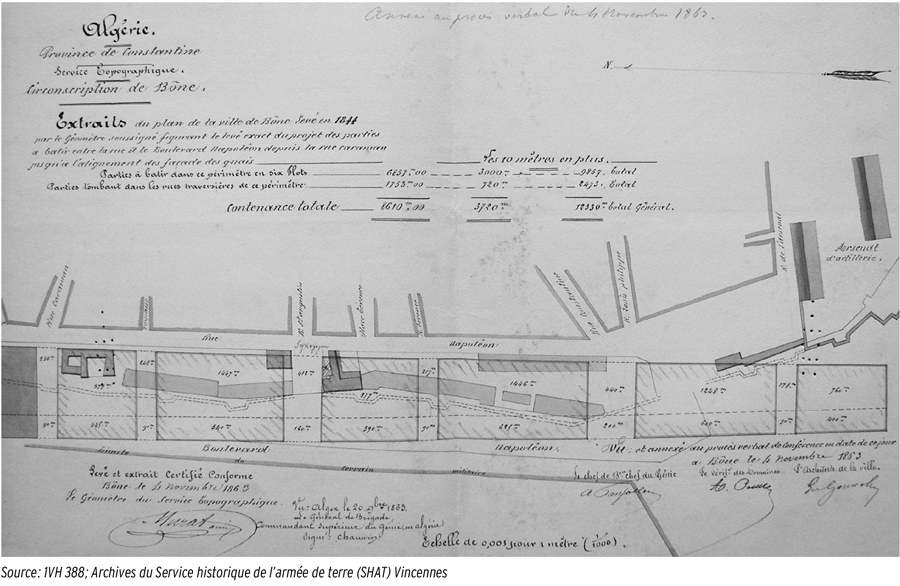 Annexé au procès verbal du 4 Novembre 1863.
Algérie.
Province de Constantine
Service Topographique.
Circonscription de Bône.
N.
Extraits du plan de la ville de Bône levé en 1844
par le Géomètre soussigné figurant le levé exact du projet des parties
à bâtir entre la rue et le Boulevard Napoléon depuis la rue caraman
jusqu'à l'alignement des façade des quais
Les 10 mètres en plus.
Parties à bâtir dans ce périmètre en six Ilots 6857.00 3000 9857. total
Parties tombant dans les rues traversières de ce périmètre 1753.00 720 2473. total
Contenance totale 8610.00 3720 12330 total Général.
Arsenal
d'artillerie.
R. de l'arsenal
Rue Caraman
R. St augustin
Rue Constantine
R. Louis philippe
Rue Napoléon
1447
412
317
1446
440
1248
176
760
445
90
540
160
390
90
625
200
600
400
Limite du terrain militaire
Boulevard Napoléon.
Levé et extrait Certifié Conforme
Bône le 4 Novembre 1863
Le Géomètre du Service Topographique.
Vu: Alger le 20 9bre 1863.
Le Général de Brigade,
Commandant Supérieur du Génie, en algérie
Signé: chauvin
Echelle de 0,001 pour 1 mètre (1/1000)
Vu et annexé au procès verbal de conférence en date de ce jour
à Bône le 4 Novembre 1863
Le chef de Bon chef du Génie
Le vérifr. des Domaines
L'Architecte de la ville.
Source: 1VH 388; Archives du Service historique de l'armée de terre (SHAT) Vincennes